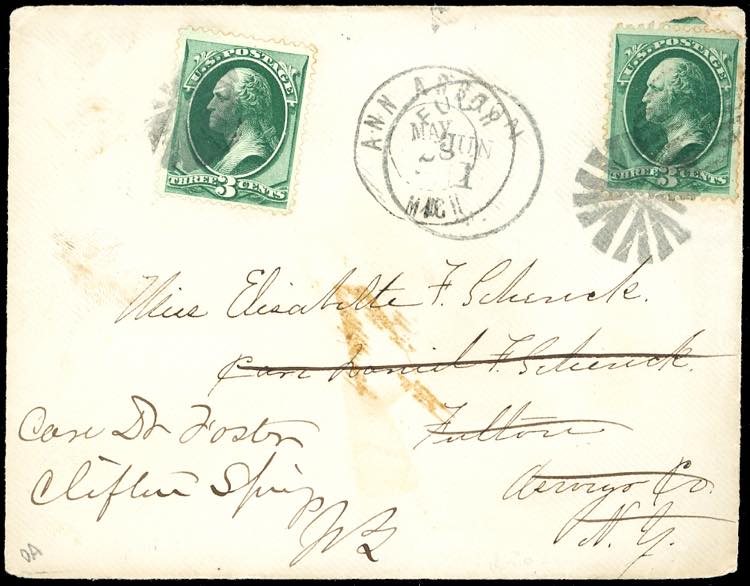 U.S. POSTAGE
THREE 3 CENTS
ANN ARBOR
MAY
28
MICH
FUL N
JUN
1
U.S. POSTAGE
THREE 3 CENTS
Miss Elisabette F. Schenck.
Care Daniel F. Schenck.
Fulton
Oswego Co.
N.Y.
Care Dr Foster
Clifton Springs
NY